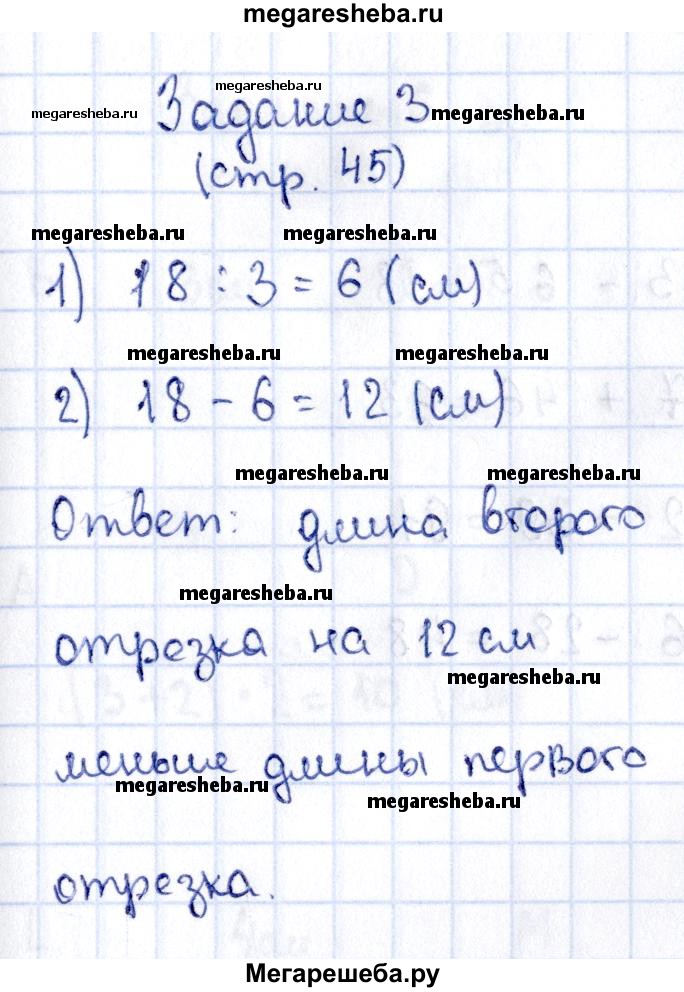 megaresheba.ru
megaresheba.ru
megaresheba.ru Задание 3 megaresheba.ru
(стр. 45)
megaresheba.ru megaresheba.ru
1) 18 : 3 = 6 (см)
megaresheba.ru megaresheba.ru
2) 18 - 6 = 12 (см)
megaresheba.ru megaresheba.ru
Ответ: длина второго
megaresheba.ru
отрезка на 12 см
megaresheba.ru
меньше длины первого
megaresheba.ru megaresheba.ru
отрезка.
Мегарешеба.ру